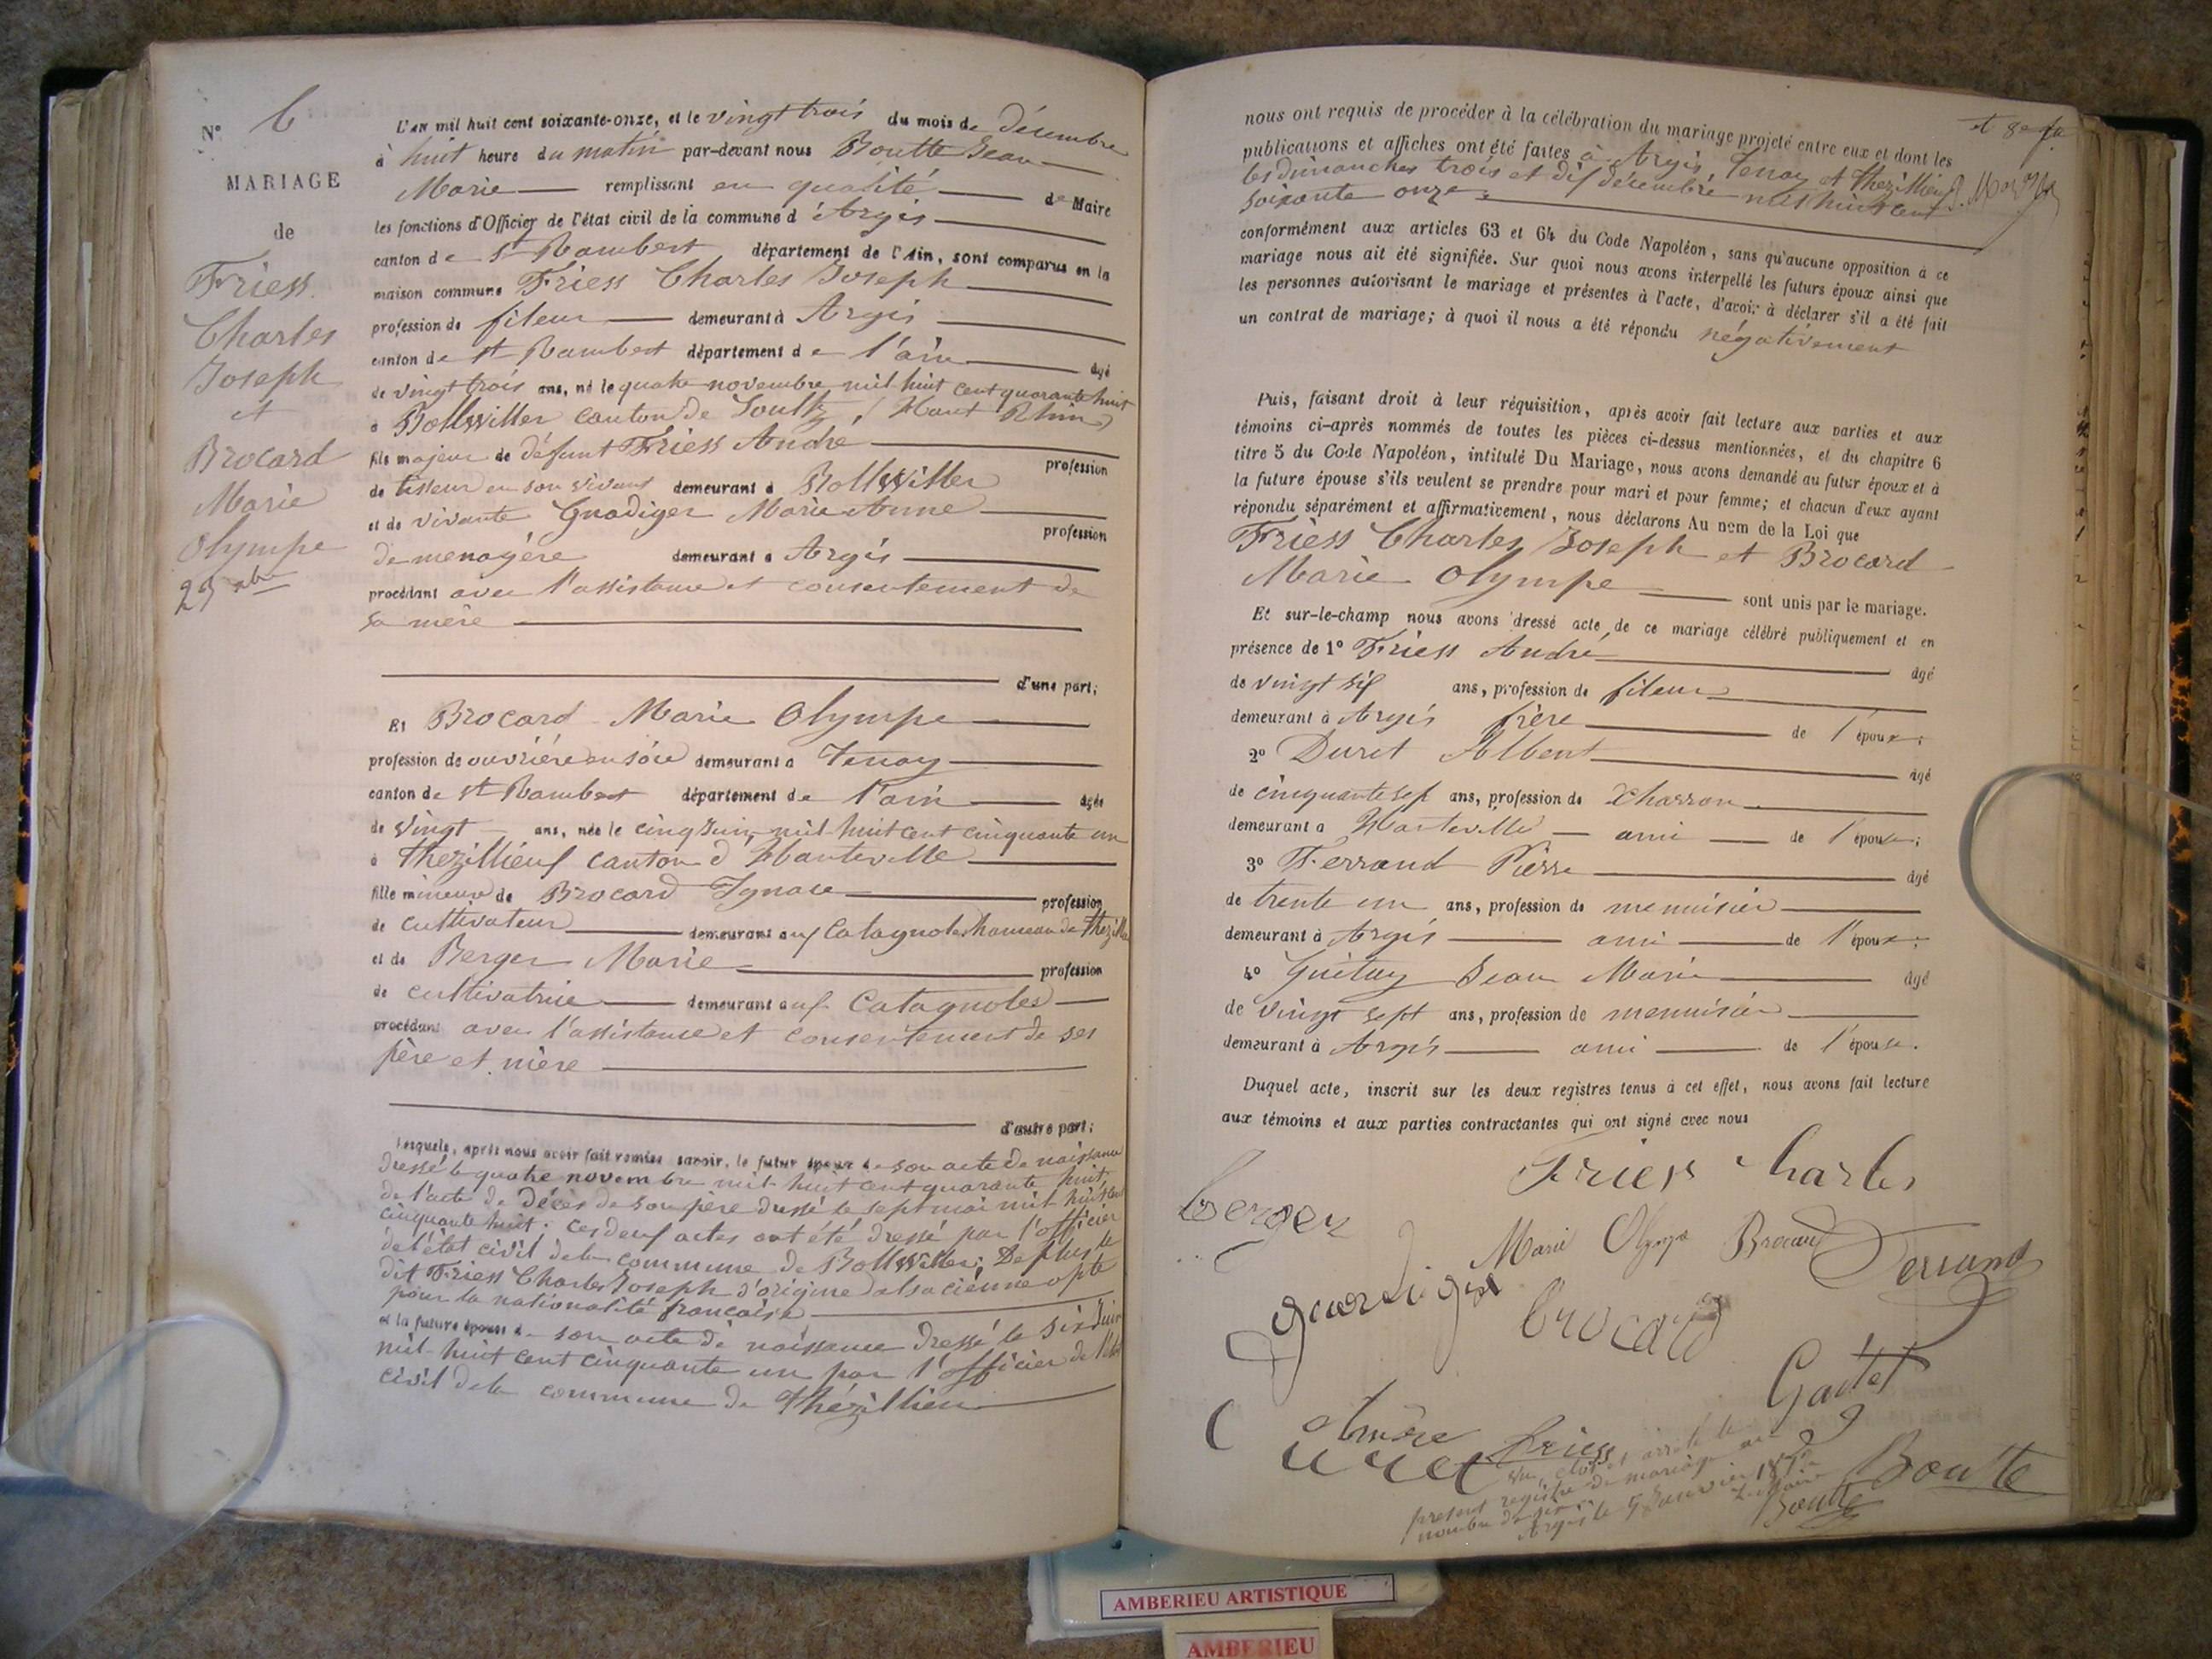 N° 6
MARIAGE
de
Friess
Charles
Joseph
et
Brocard
Marie
Olympe
23 xbre
L'an mil huit cent soixante-onze, et le vingt trois du mois de décembre
à huit heure du matin par-devant nous Boutte Jean
Marie remplissant en qualité de Maire
les fonctions d'Officier de l'état civil de la commune d'Argis
canton de St Rambert département de l'Ain, sont comparus en la
maison commune Friess Charles Joseph
profession de fileur demeurant à Argis
canton de St Rambert département de l'ain âgé
de vingt trois ans, né le quatre novembre mil huit cent quarante huit
à Bollwiller canton de Soultz (Haut Rhin)
fils majeur de défunt Friess André profession
de tisseur en son vivant demeurant à Bollwiller
et de vivante Gnadiger Marie Anne profession
de menagère demeurant à Argis
procédant avec l'assistance et consentement de
sa mère
d'une part;
Et Brocard Marie Olympe
profession de ouvrière en soie demeurant à Tenay
canton de St Rambert département de l'ain âgée
de vingt ans, née le cinq Juin mil huit cent cinquante un
à Thezillieux canton d'Hauteville
fille mineure de Brocard Ignace profession
de cultivateur demeurant aux Catagnoles hameau de Thezillx
et de Berger Marie profession
de cultivatrice demeurant aux Catagnoles
procédant avec l'assistance et consentement de ses
père et mère
d'autre part;
Lesquels, après nous avoir fait remise savoir, le futur époux de son acte de naissance
dressé le quatre novembre mil huit cent quarante huit,
de l'acte de décès de son père dressé le sept mai mil huit cent
cinquante huit. Ces deux actes ont été dressé par l'officier
de l'état civil de la commune de Bollwiller. De plus le
dit Friess Charles Joseph d'origine alsacienne opte
pour la nationalité française
et la future épouse de son acte de naissance dressé le six Juin
mil huit cent cinquante un par l'officier de l'état
civil de la commune de Thézillieu
nous ont requis de procéder à la célébration du mariage projeté entre eux et dont les
publications et affiches ont été faites à Argis, Tenay et Thezillieux
les dimanches trois et dix décembre mil huit cent
soixante onze
conformément aux articles 63 et 64 du Code Napoléon, sans qu'aucune opposition à ce
mariage nous ait été signifiée. Sur quoi nous avons interpellé les futurs époux ainsi que
les personnes autorisant le mariage et présentes à l'acte, d'avoir à déclarer s'il a été fait
un contrat de mariage; à quoi il nous a été répondu négativement
Puis, faisant droit à leur réquisition, après avoir fait lecture aux parties et aux
témoins ci-après nommés de toutes les pièces ci-dessus mentionnées, et du chapitre 6
titre 5 du Code Napoléon, intitulé Du Mariage, nous avons demandé au futur époux et à
la future épouse s'ils veulent se prendre pour mari et pour femme; et chacun d'eux ayant
répondu séparément et affirmativement, nous déclarons Au nom de la Loi que
Friess Charles Joseph et Brocard
Marie Olympe sont unis par le mariage.
Et sur-le-champ nous avons dressé acte de ce mariage célébré publiquement et en
présence de 1° Friess André âgé
de vingt six ans, profession de fileur
demeurant à Argis frère de l'époux;
2° Duret Albert âgé
de cinquante sept ans, profession de charron
demeurant à Hauteville ami de l'épouse;
3° Ferrand Pierre âgé
de trente un ans, profession de menuisier
demeurant à Argis ami de l'époux;
4° Jean Marie âgé
de vingt sept ans, profession de menuisier
demeurant à Argis ami de l'épouse.
Duquel acte, inscrit sur les deux registres tenus à cet effet, nous avons fait lecture
aux témoins et aux parties contractantes qui ont signé avec nous
Friess Charles
berger
Marie Olympe Brocard Ferrand
brocard
friess
Boutte
Vu, clos et arrêté le
présent registre de mariage au
nombre de six
Argis le Janvier 1872
Le Maire
Boutte
AMBERIEU ARTISTIQUE
AMBERIEU